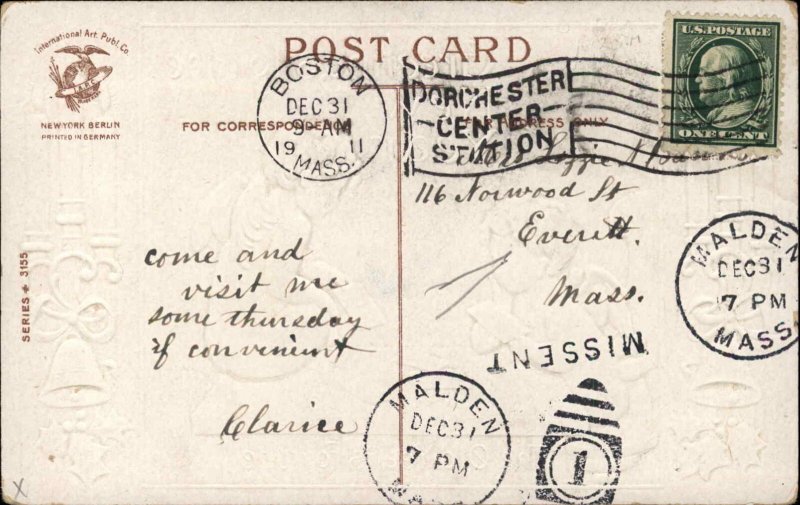 International Art Publ. Co.
NEW YORK BERLIN
PRINTED IN GERMANY
POST CARD
FOR CORRESPONDENCE
FOR ADDRESS ONLY
BOSTON
DEC 31
9 - AM
19 11
MASS.
DORCHESTER
CENTER
STATION
U.S. POSTAGE
ONE CENT
Lizzie
116 Norwood St
Everett.
Mass.
come and
visit me
some thursday
if convenient
Clarice
SERIES 3155
MISSENT
MALDEN
DEC 31
7 PM
MASS.
MALDEN
DEC 31
7 PM
MA
1